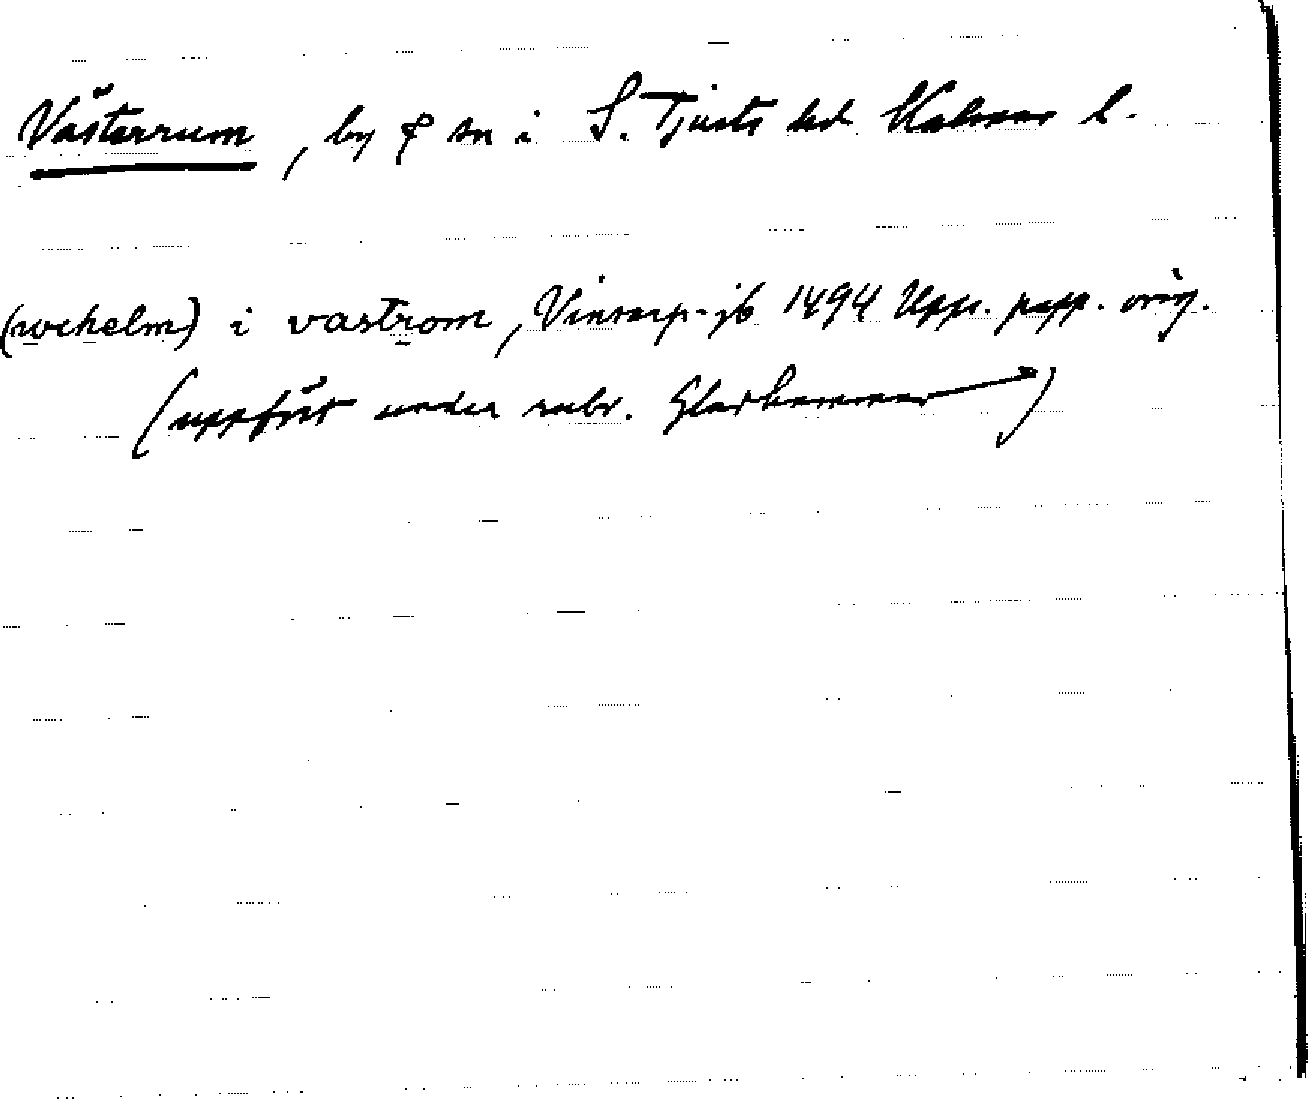 Västerrum, by & sn i S. Tjusts hd Kalmar l.
(wehelm) i vastrom, Vinstorp-jb 1494 Upps. papp. orig.
(uppfört under rubr. Gladhammar)